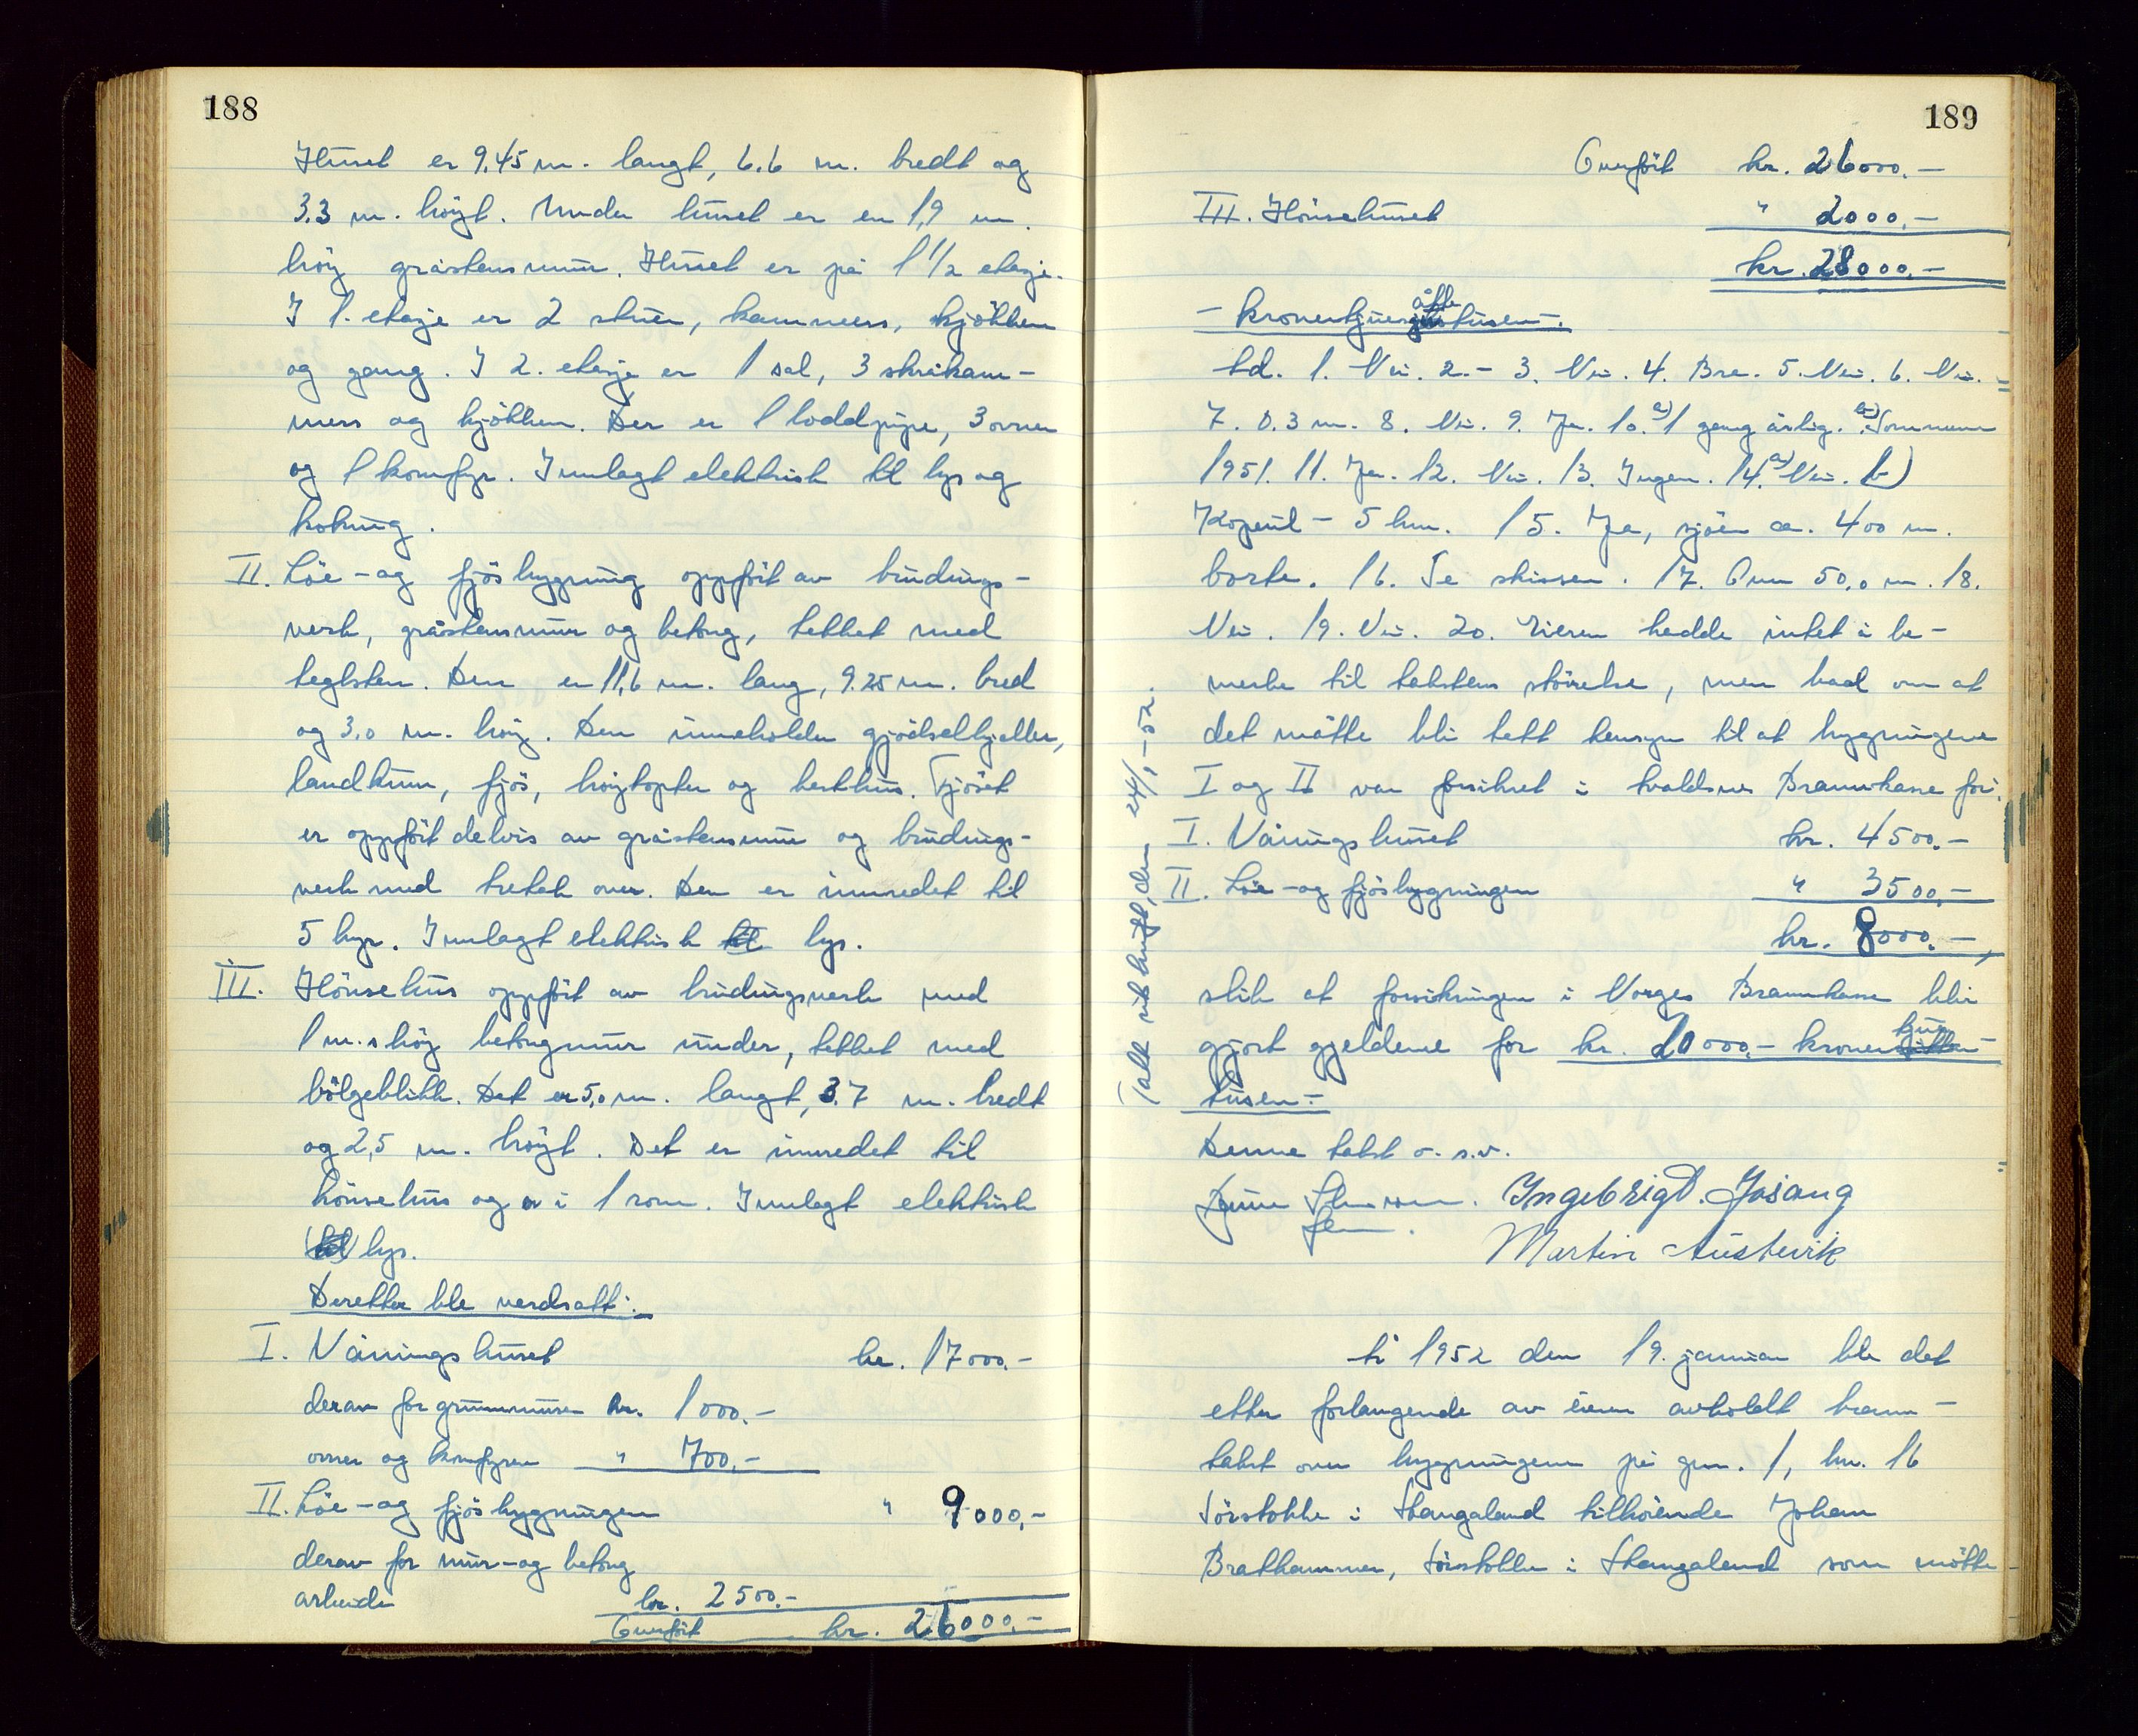 188
Huset er 9.45 m. langt, 6.6 m. bredt og
3.3 m. høyt. Under huset er en 1,9 m.
høy gråstensmur. Huset er på 1 1/2 etasje.
I 1. etasje er 2 stuer, kammers, kjøkken
og gang. I 2. etasje er 1 sal, 3 skråkam-
mers og kjøkken. Der er 1 loddpipe, 3 ovner
og 1 komfyr. Innlagt elektrisk til lys og
koking.
II. Løe- og fjøsbygning oppført av bindings-
verk, gråstensmur og betong, tekket med
teglsten. Den er 11,6 m. lang, 9.25 m. bred
og 3,0 m. høy. Den inneholder gjødselkjeller,
landkum, fjøs, høytopter og hesthus. Fjøset
er oppført delvis av gråstensmur og bindings-
verk med tretak over. Den er innredet til
5 kyr. Innlagt elektrisk til lys.
III. Hønsehus oppført av bindingsverk med
1 m. høy betongmur under, tekket med
bølgeblikk. Det er 5,0 m. langt, 3.7 m. bredt
og 2,5 m. høyt. Det er innredet til
hønsehus og er i 1 rom. Innlagt elektrisk
til lys.
Deretter ble verdsatt:
I. Våningshuset kr. 17000.-
derav for grunnmuren kr. 1000.-
ovner og komfyren " 700.-
II. Løe- og fjøsbygningen " 9000,-
derav for mur- og betong
arbeide kr. 2500.-
Overført kr. 26000.-
189
Overført kr. 26000.-
III. Hønsehuset " 2000.-
kr. 28000.-
åtte
- kronertjue tusen-.
td. 1. Nei. 2.- 3. Nei. 4. Bra. 5. Nei. 6. Nei.
7. 0.3 m. 8. Nei. 9. Ja. 10. a) 1 gang årlig. b) Sommeren
1951. 11. Ja. 12. Nei. 13. Ingen. 14. a) Nei. b)
Kopervik - 5 km. 15. Ja, sjøen ca. 400 m.
borte. 16. Se skissen. 17. Over 50,0 m. 18.
Nei. 19. Nei. 20. Eieren hadde intet å be-
merke til takstens størrelse, men bad om at
det måtte bli tatt hensyn til at bygningene
I og II var forsikret i Avaldsnes Brannkasse for:
I. Våningshuset kr. 4500.-
II. Løe- og fjøsbygningen " 3500,-
kr. 8000.-,
slik at forsikringen i Norges Brannkasse blir
gjort gjeldene for kr. 20000.- kroner tjue
tusen-
Denne takst o. s.v.
Ingebrigt. Jøsang
Martin Austevik
Takst utskrift, den 24/1-52.
År 1952 den 19. januar ble det
etter forlangende av eieren avholdt brann-
takst over bygningene på gnr. 1, bnr. 16
Sørstokke i Skangaland tilhørende Johan
Brathammer, Sørstokke i Skangaland som møtte